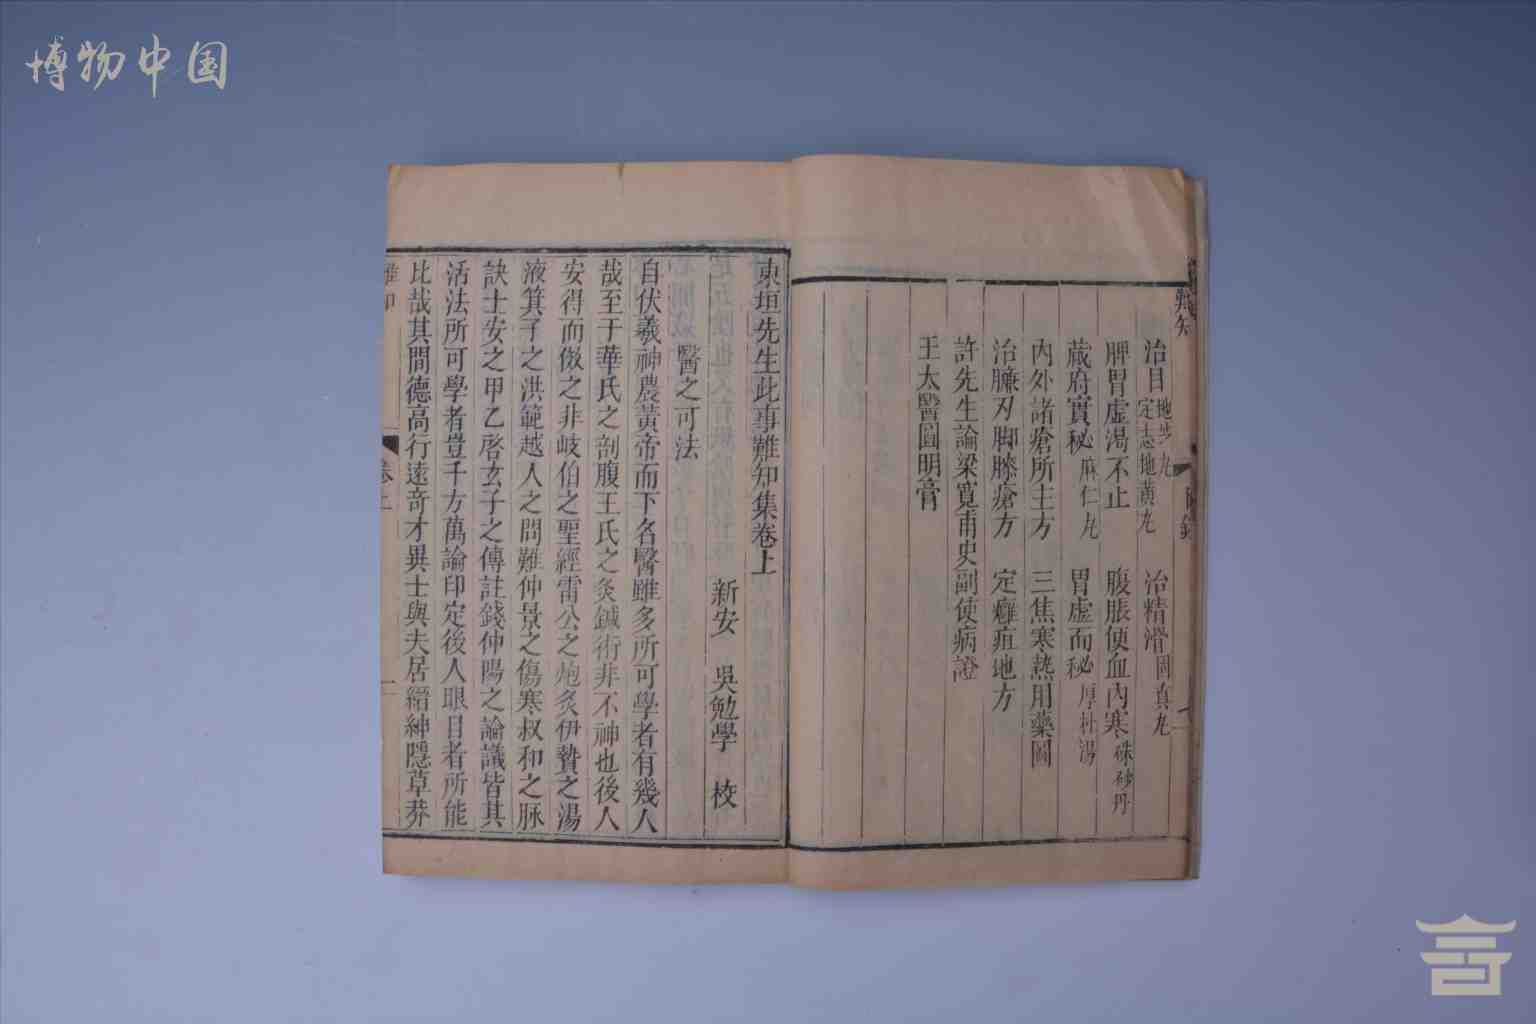 博物中国
難知
治目 地芝丸 定志地黃丸 治精滑 固真丸
脾胃虛渴不止 腹脹便血內寒 硃砂丹
蔵府實秘 麻仁丸 胃虛而秘 厚杜湯
內外諸瘡所主方 三焦寒熱用藥圖
治臁刃脚膝瘡方 定癰疽地方
許先生論梁寬甫史副使病證
王太醫圓明膏
東垣先生此事難知集卷上
新安 吳勉學 校
醫之可法
自伏羲神農黃帝而下名醫雖多所可學者有幾人
哉至于華氏之剖腹王氏之灸鍼術非不神也後人
安得而倣之非岐伯之聖經雷公之炮炙伊贄之湯
液箕子之洪範越人之問難仲景之傷寒叔和之脉
訣士安之甲乙啓玄子之傳註錢仲陽之論議皆其
活法所可學者豈千方萬論印定後人眼目者所能
比哉其間德高行遠奇才異士與夫居縉紳隱草莽
難知 卷上 一